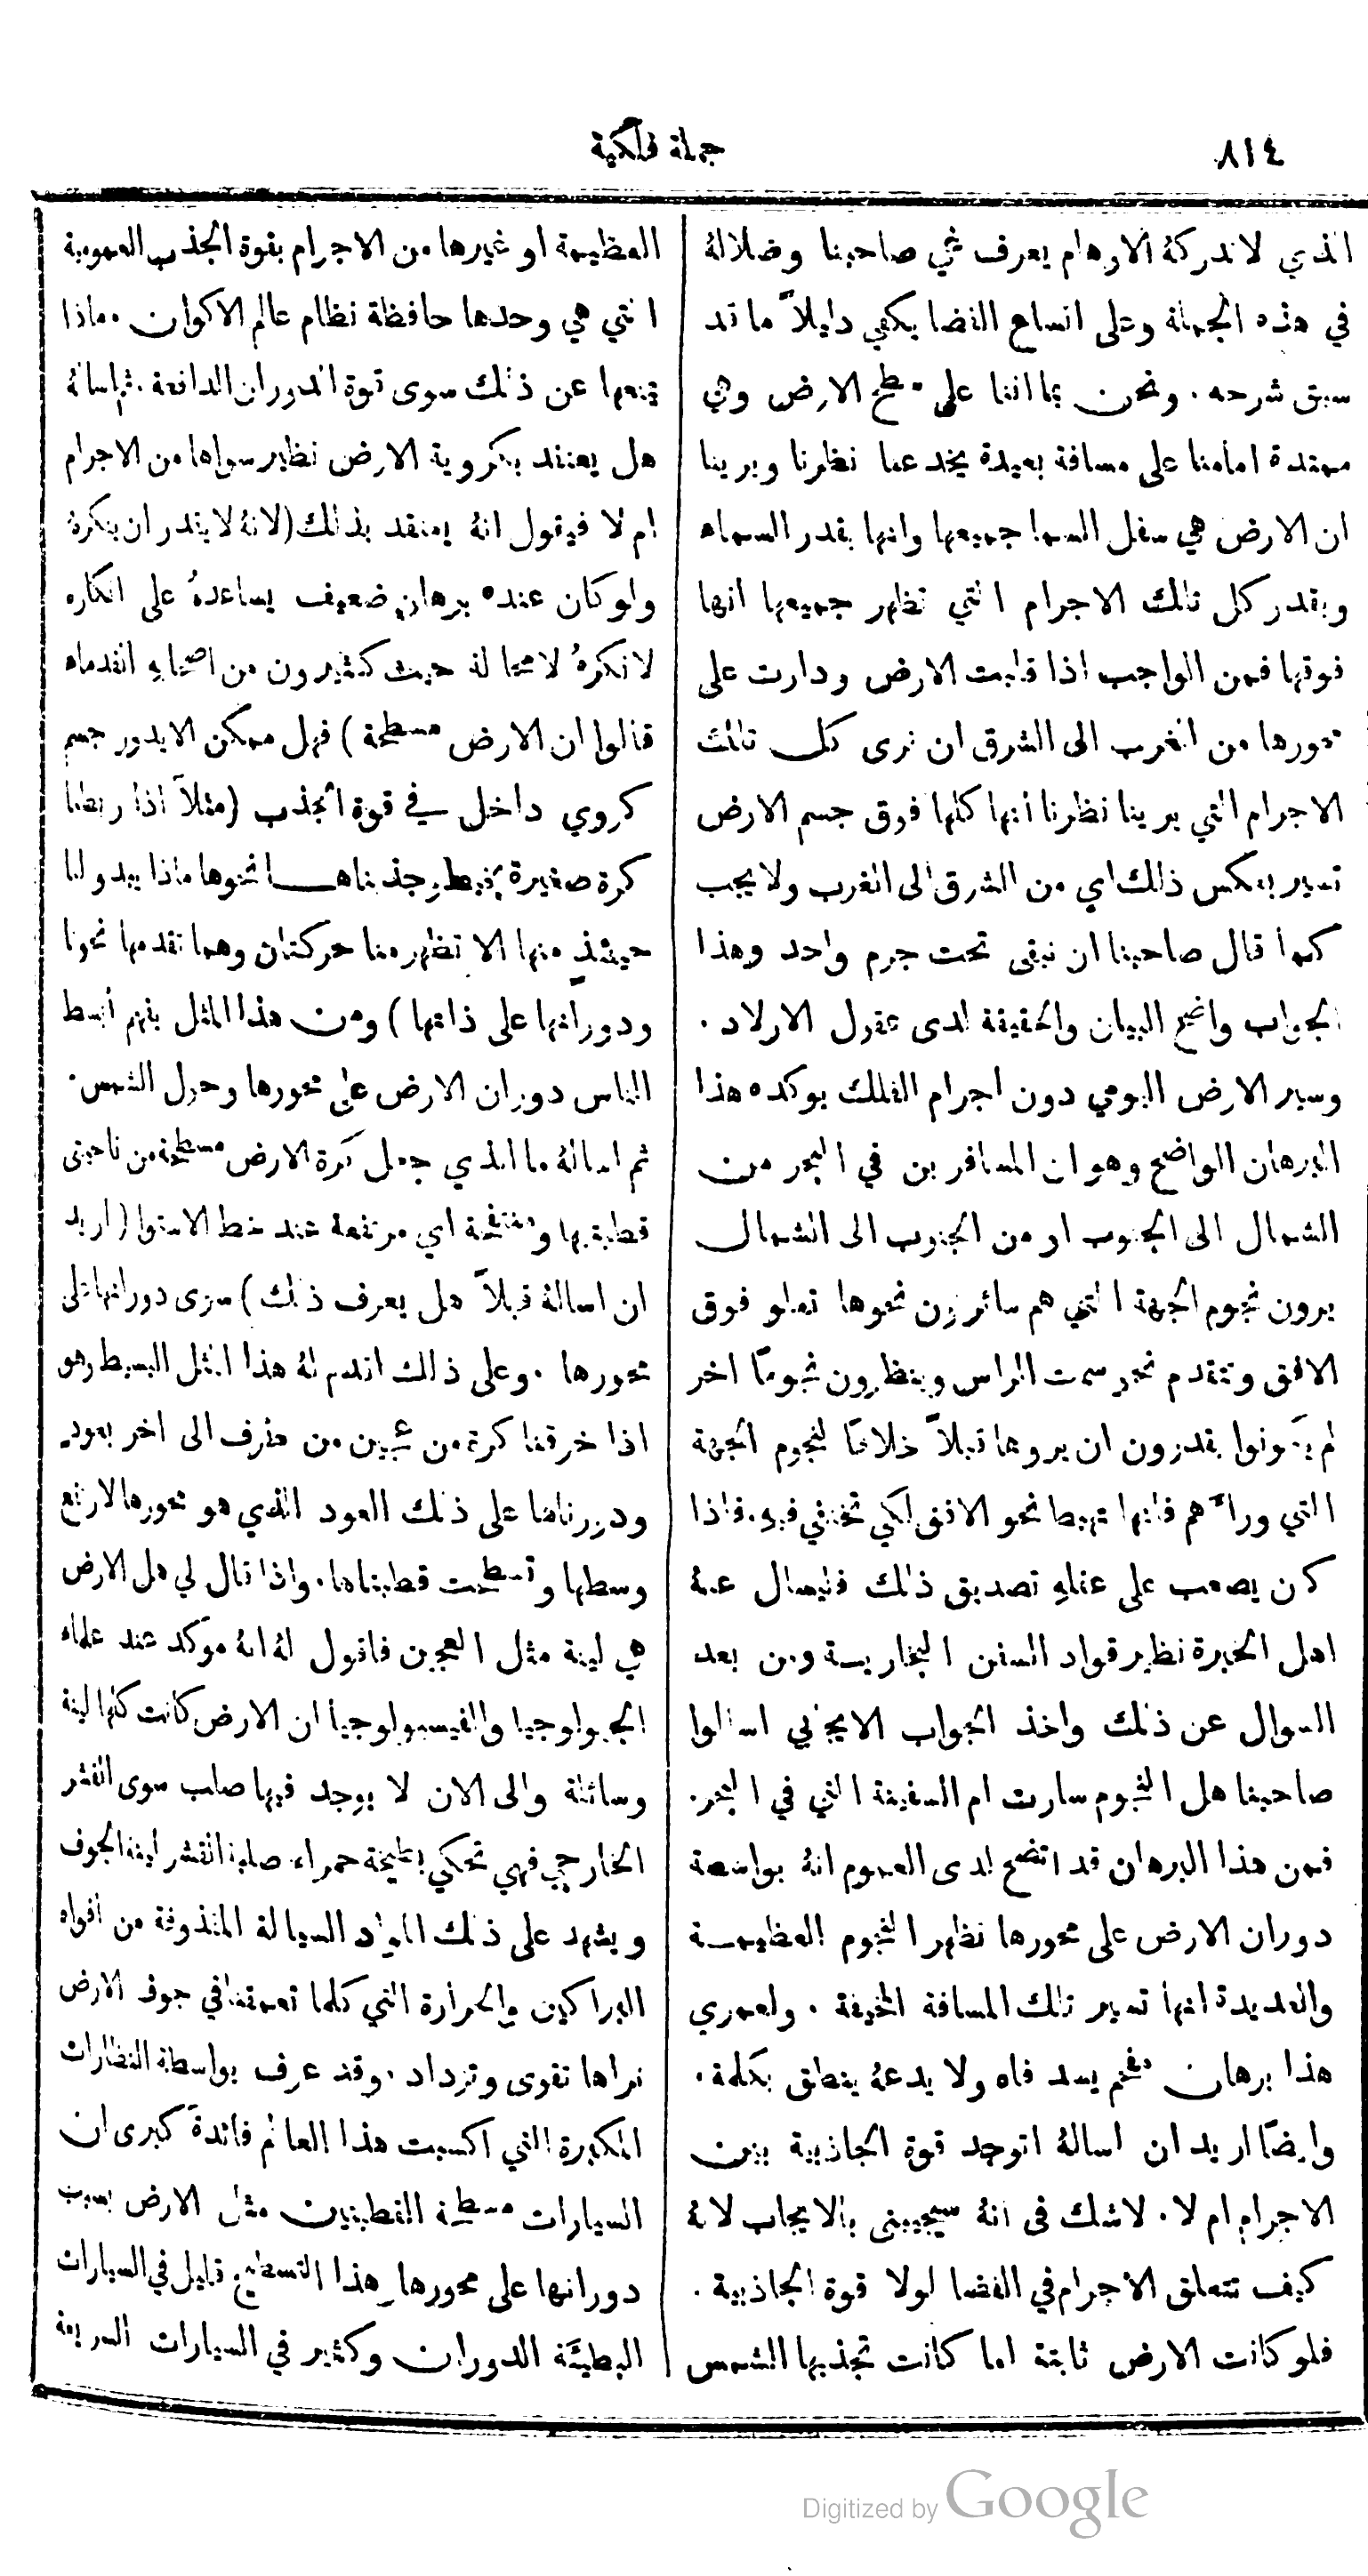 ٨١٤
جملة فلكية
الذي لا تدركهُ الاوهام يعرف غي صاحبنا وضلالهُ
في هذه الجملة وعلى اتساع الفضا يكفي دليلاً ما قد
سبق شرحه . ونحن بما اننا على سطح الارض وهي
ممتدة امامنا على مسافة بعيدة يخدعنا نظرنا ويرينا
ان الارض هي سفل السما جميعها وانها بقدر السماء
وبقدر كل تلك الاجرام التي تظهر جميعها انها
فوقها فمن الواجب اذا قلبت الارض ودارت على
محورها من الغرب الى الشرق ان نرى كل تلك
الاجرام التي يرينا نظرنا انها كلها فوق جسم الارض
تسير بعكس ذلك اي من الشرق الى الغرب ولا يجب
كما قال صاحبنا ان نبقى تحت جرم واحد وهذا
الجواب واضح البيان والحقيقة لدى عقول الاولاد .
وسير الارض اليومي دون اجرام الفلك يوكده هذا
البرهان الواضح وهو ان المسافرين في البحر من
الشمال الى الجنوب او من الجنوب الى الشمال
يرون نجوم الجهة التي هم سائرون نحوها تعلو فوق
الافق وتتقدم نحو سمت الراس وينظرون نجومًا اخر
لم يكونوا يقدرون ان يروها قبلاً خلافًا لنجوم الجهة
التي ورآهم فانها تهبط نحو الافق لكي تختفي فيهِ . فاذا
كان يصعب على عقلهِ تصديق ذلك فليسال عنهُ
اهل الخبرة نظير قواد السفن البخارية ومن بعد
السوال عن ذلك واخذ الجواب الايجابي اسالوا
صاحبنا هل النجوم سارت ام السفينة التي في البحر.
فمن هذا البرهان قد اتضح لدى العموم انهُ بواسطة
دوران الارض على محورها تظهر النجوم العظيمة
والعديدة انها تسير تلك المسافة المخيفة . ولعمري
هذا برهان مفحم يسد فاه ولا يدعهُ ينطق بكلمة .
وايضًا اريد ان اسالهُ اتوجد قوة الجاذبية بين
الاجرام ام لا . لا شك في انهُ سيجيبني بالايجاب لانهُ
كيف تتعلق الاجرام في الفضا لولا قوة الجاذبية .
فلو كانت الارض ثابتة اما كانت تجذبها الشمس
العظيمة او غيرها من الاجرام بقوة الجذب العمومية
التي هي وحدها حافظة نظام عالم الاكوان . وماذا
يمنعها عن ذلك سوى قوة الدوران الدافعة . ثم اسالهُ
هل يعتقد بكروية الارض نظير سواها من الاجرام
ام لا فيقول انهُ يعتقد بذلك (لانهُ لا يقدر ان ينكرهُ
ولو كان عنده برهان ضعيف يساعدهُ على انكاره
لانكرهُ لا محالة حيث كثيرون من اصحابهِ القدماء
قالوا ان الارض مسطحة ) فهل ممكن الا يدور جسم
كروي داخل في قوة الجذب (مثلاً اذا ربطنا
كرة صغيرة بخيط وجذبناها نحونا ماذا يبدو لنا
حينئذٍ منها الا تظهر منا حركتان وهما تقدمها نحونا
ودورانها على ذاتها ) ومن هذا المثل يفهم ابسط
الناس دوران الارض على محورها وحول الشمس .
ثم اسالهُ ما الذي جعل كرة الارض مسطحة من ناحيتي
قطبتيها ومنتفخة اي مرتفعة عند خط الاستوا (اريد
ان اسالهُ قبلاً هل يعرف ذلك ) سوى دورانها على
محورها . وعلى ذلك اقدم لهُ هذا المثل البسيط وهو
اذا خرقنا كرة من عجين من طرف الى اخر بعودٍ
ودورناها على ذلك العود الذي هو محورها لارتفع
وسطها وتسطحت قطبتاها . واذا قال لي هل الارض
هي لينة مثل العجين فاقول لهُ انهُ موكد عند علماء
الجيولوجيا والفيسيولوجيا ان الارض كانت كلها لينة
وسائلة والى الان لا يوجد فيها صلب سوى القشر
الخارجي فهي تحكي بطيخة حمراء صلبة القشر لينة الجوف
ويشهد على ذلك المواد السيالة المقذوفة من افواه
البراكين والحرارة التي كلما تعمقنا في جوف الارض
نراها تقوى وتزداد . وقد عرف بواسطة النظارات
المكبرة التي اكسبت هذا العالم فائدةً كبرى ان
السيارات مسطحة القطبتين مثل الارض بسبب
دورانها على محورها وهذا التسطيح قليل في السيارات
البطيئة الدوران وكثير في السيارات السريعة
Digitized by Google